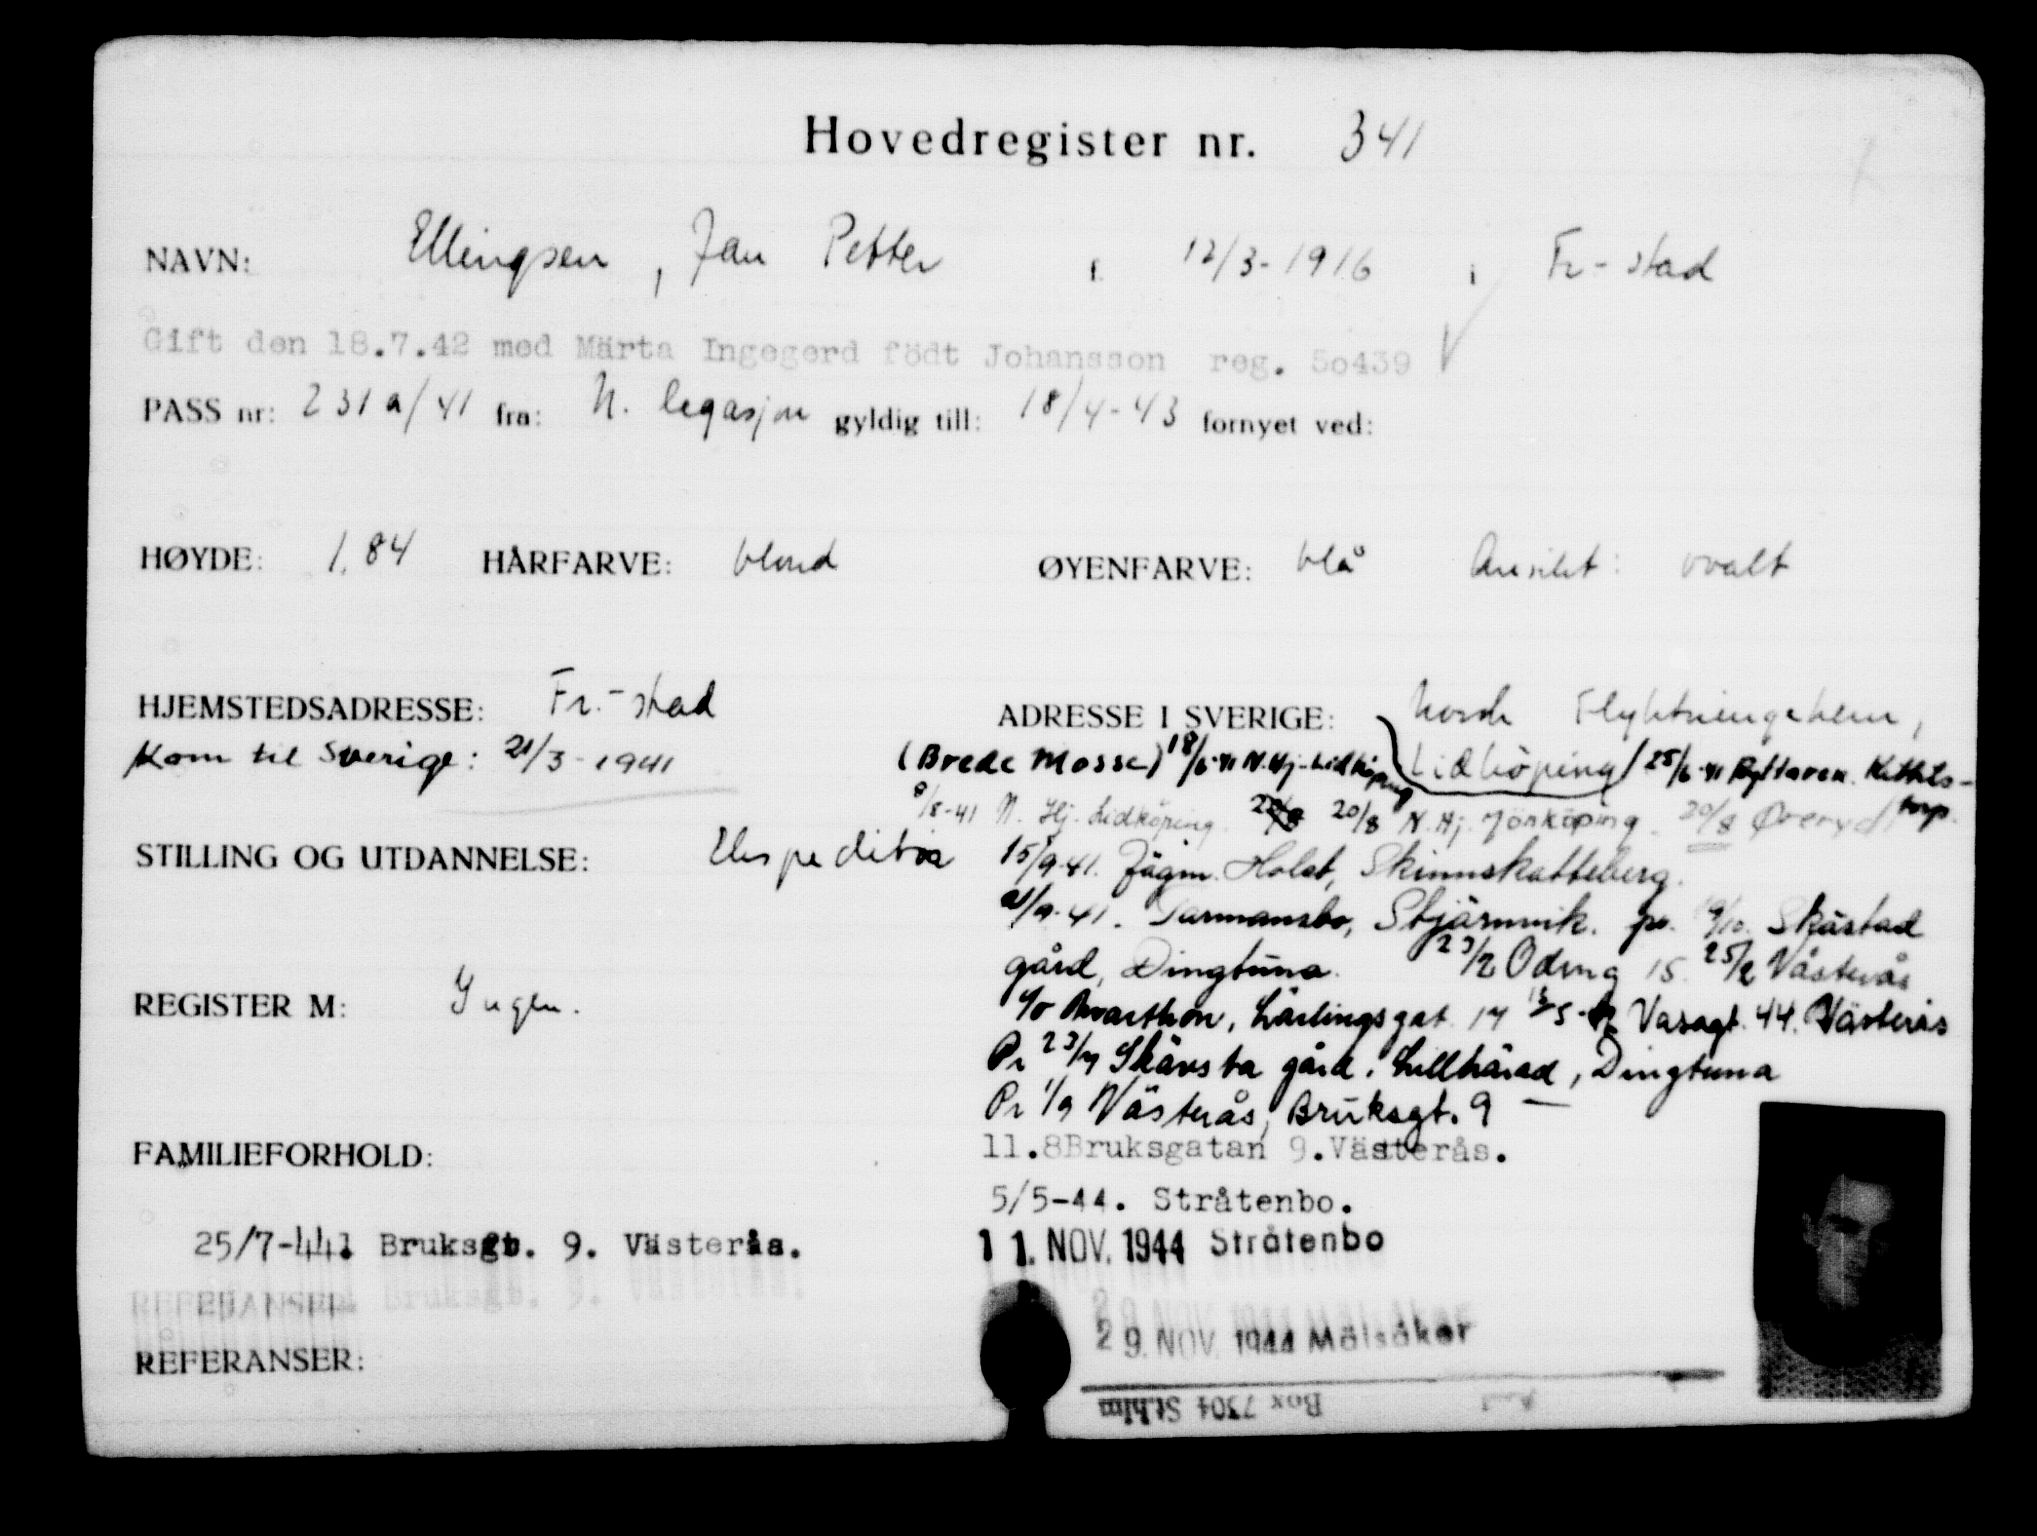 Hovedregister nr. 341
NAVN: Ellingsen, Jan Petter f. 12/3-1916 i Fr-stad
Gift den 18.7.42 med Märta Ingegerd födt Johansson reg. 5o439 √
PASS nr: 231a/41 fra: N. legasjon gyldig till: 18/4-43 fornyet ved:
HØYDE: 1.84 HÅRFARVE: blond ØYENFARVE: blå Ansikt: ovalt
HJEMSTEDSADRESSE: Fr.-stad ADRESSE I SVERIGE: Norsk Flyktningehem,
Kom til Sverige: 21/3-1941 (Brede Mosse) 18/6-41 N.Hj-Lidköping Lidköping 25/6-41 Ryttaren. Kättils-
torp.
8/8-41 N. Hj. Lidköping 20/8 N.Hj. Jönköping 20/8 Øveryd
STILLING OG UTDANNELSE: Ekspeditør 15/9-41. Jägm. Holst, Skinnskatteberg.
21/9-41. Tarmansbo, Stjärnvik. pr. Skästad
gård, Dingtuna. 23/2 Odeng 15. 25/2 Västerås
REGISTER M: Ingen.
c/o Lärlingsgat 17 Vasagt. 44. Västerås
Pr 23/7 Skävsta gård. Lillhärad, Dingtuna
Pr 1/9 Västerås, Bruksgt. 9 —
FAMILIEFORHOLD: 11.8Bruksgatan 9.Västerås.
5/5-44. Stråtenbo.
25/7-44 Bruksgt. 9. Västerås. 11. NOV. 1944 Stråtenbo
29. NOV. 1944 Mälsåker
REFERANSER:
Box 7304 St.hlm